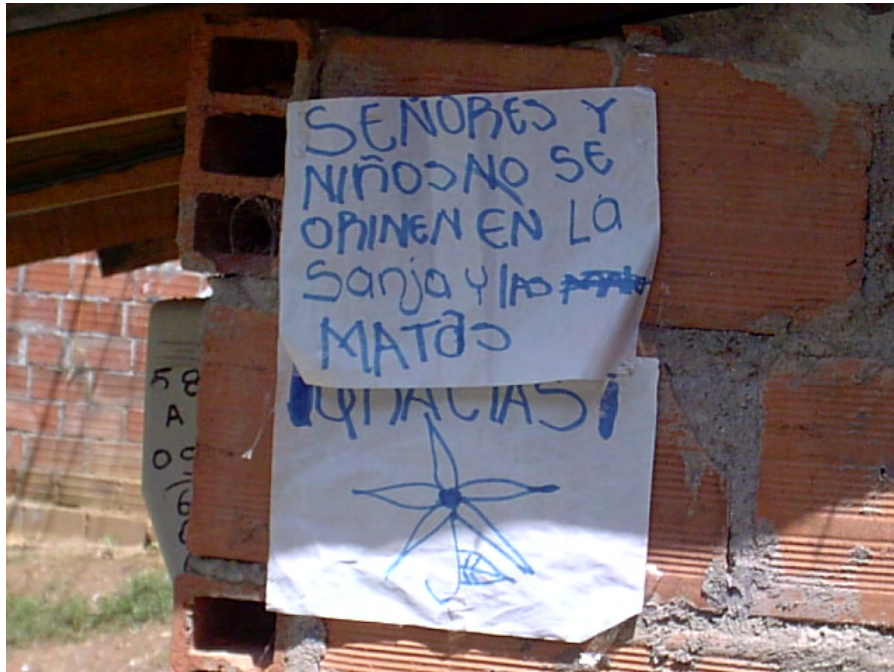 SEÑORES Y
NIÑOS NO SE
ORINEN EN LA
Sanja y lAS
MATaS
¡GRACIAS!
58
A
09